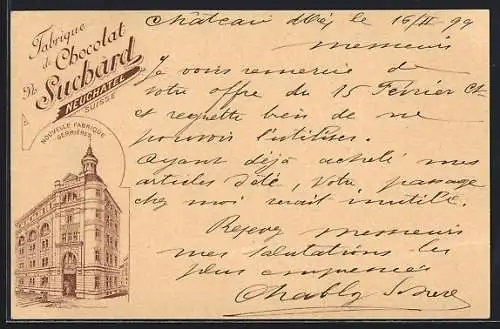 Fabrique
de Chocolat
Ph. Suchard
NEUCHATEL
SUISSE
NOUVELLE FABRIQUE
SERRIÈRES
Château d'Oex le 16/II 99
Messieurs
Je vous remercie de
votre offre du 15 Février ct
et regrette bien de ne
pouvoir l'utiliser.
Ayant déjà acheté mes
articles d'été, votre passage
chez moi serait inutile.
Recevez messieurs
mes salutations les
plus empressées